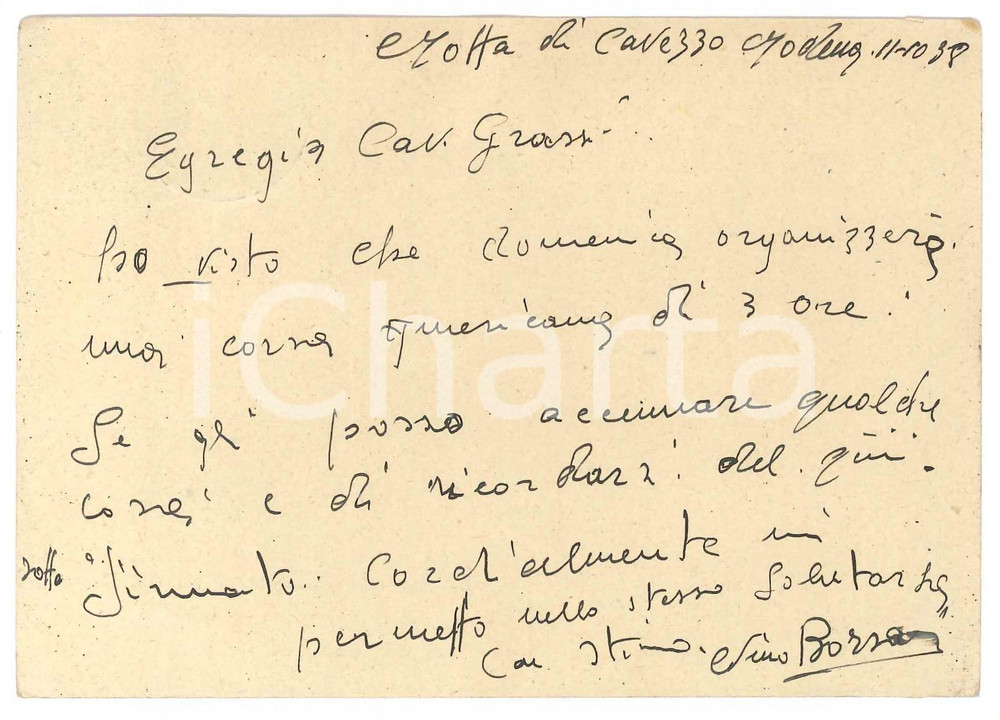 Motta di Cavezzo Modena. 11-10 38
Egregio Cav. Grassi.
ho visto che domenica organizzerà.
una corsa Americana di 3 ore.
Se gli posso accennare qualche
cosa e di ricordarsi del qui.
sotto firmato. Cordialmente mi
permetto nello stesso Salutarla
Con stima. Nino Borsari
iCharta